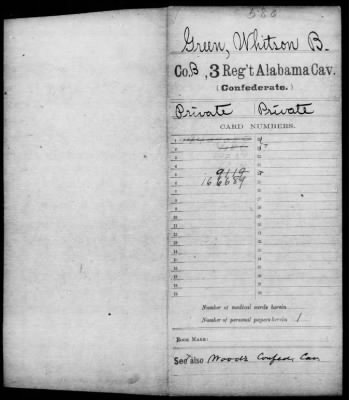 586
Green, Whitson B.
Co. B, 3 Reg't Alabama Cav.
(Confederate.)
Private Private
CARD NUMBERS.
1
2
3
4
5 9119
6 166689
7
8
9
10
11
12
13
14
15
16
17
18
Number of medical cards herein
Number of personal papers herein 1
BOOK MARK:
See also Woods Confed. Cav